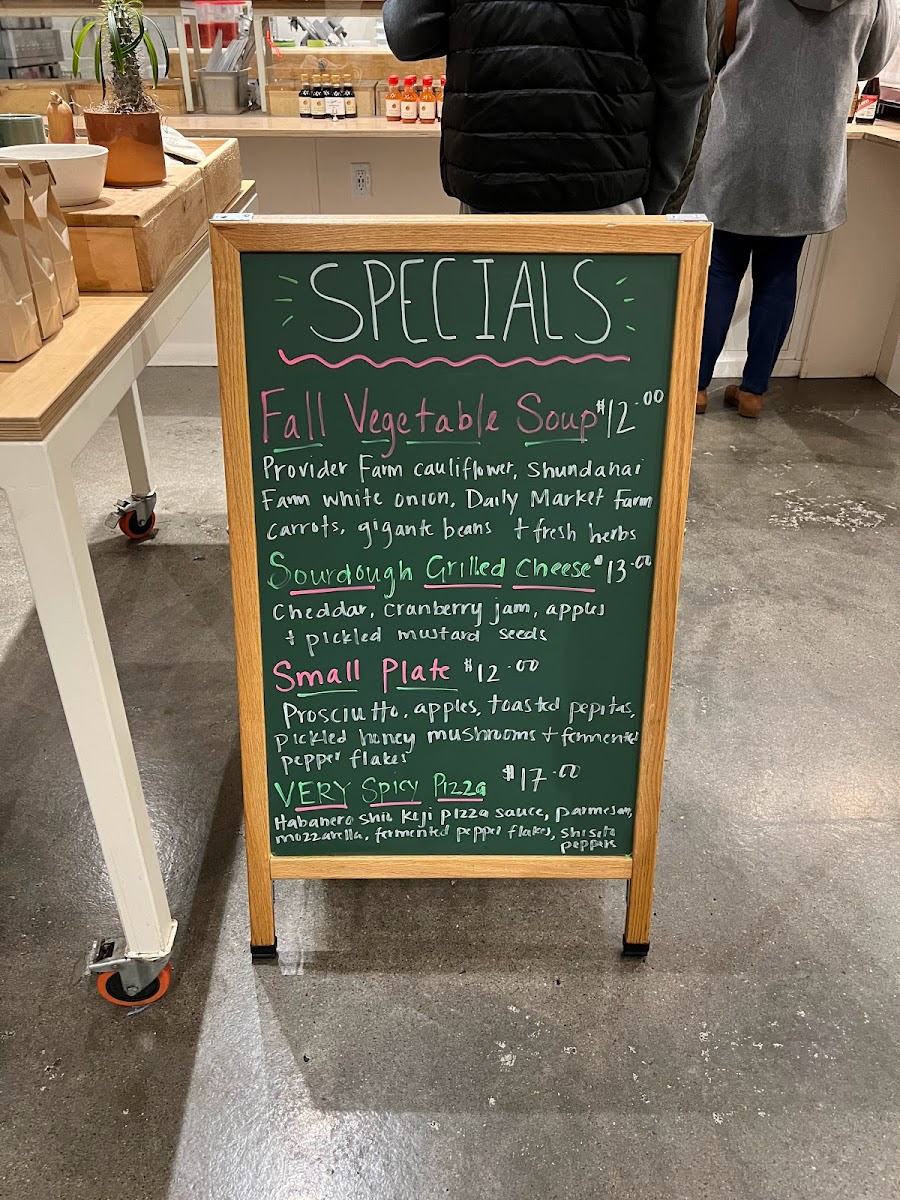 SPECIALS
Fall Vegetable Soup $12.00
Provider Farm cauliflower, Shundahai
Farm white onion, Daily Market Farm
carrots, gigante beans + fresh herbs
Sourdough Grilled Cheese $13.00
Cheddar, cranberry jam, apples
+ pickled mustard seeds
Small Plate $12.00
Prosciutto, apples, toasted pepitas,
pickled honey mushrooms + fermented
pepper flakes
VERY Spicy Pizza $17.00
Habanero shio koji pizza sauce, parmesan,
mozzarella, fermented pepper flakes, shisito
peppers